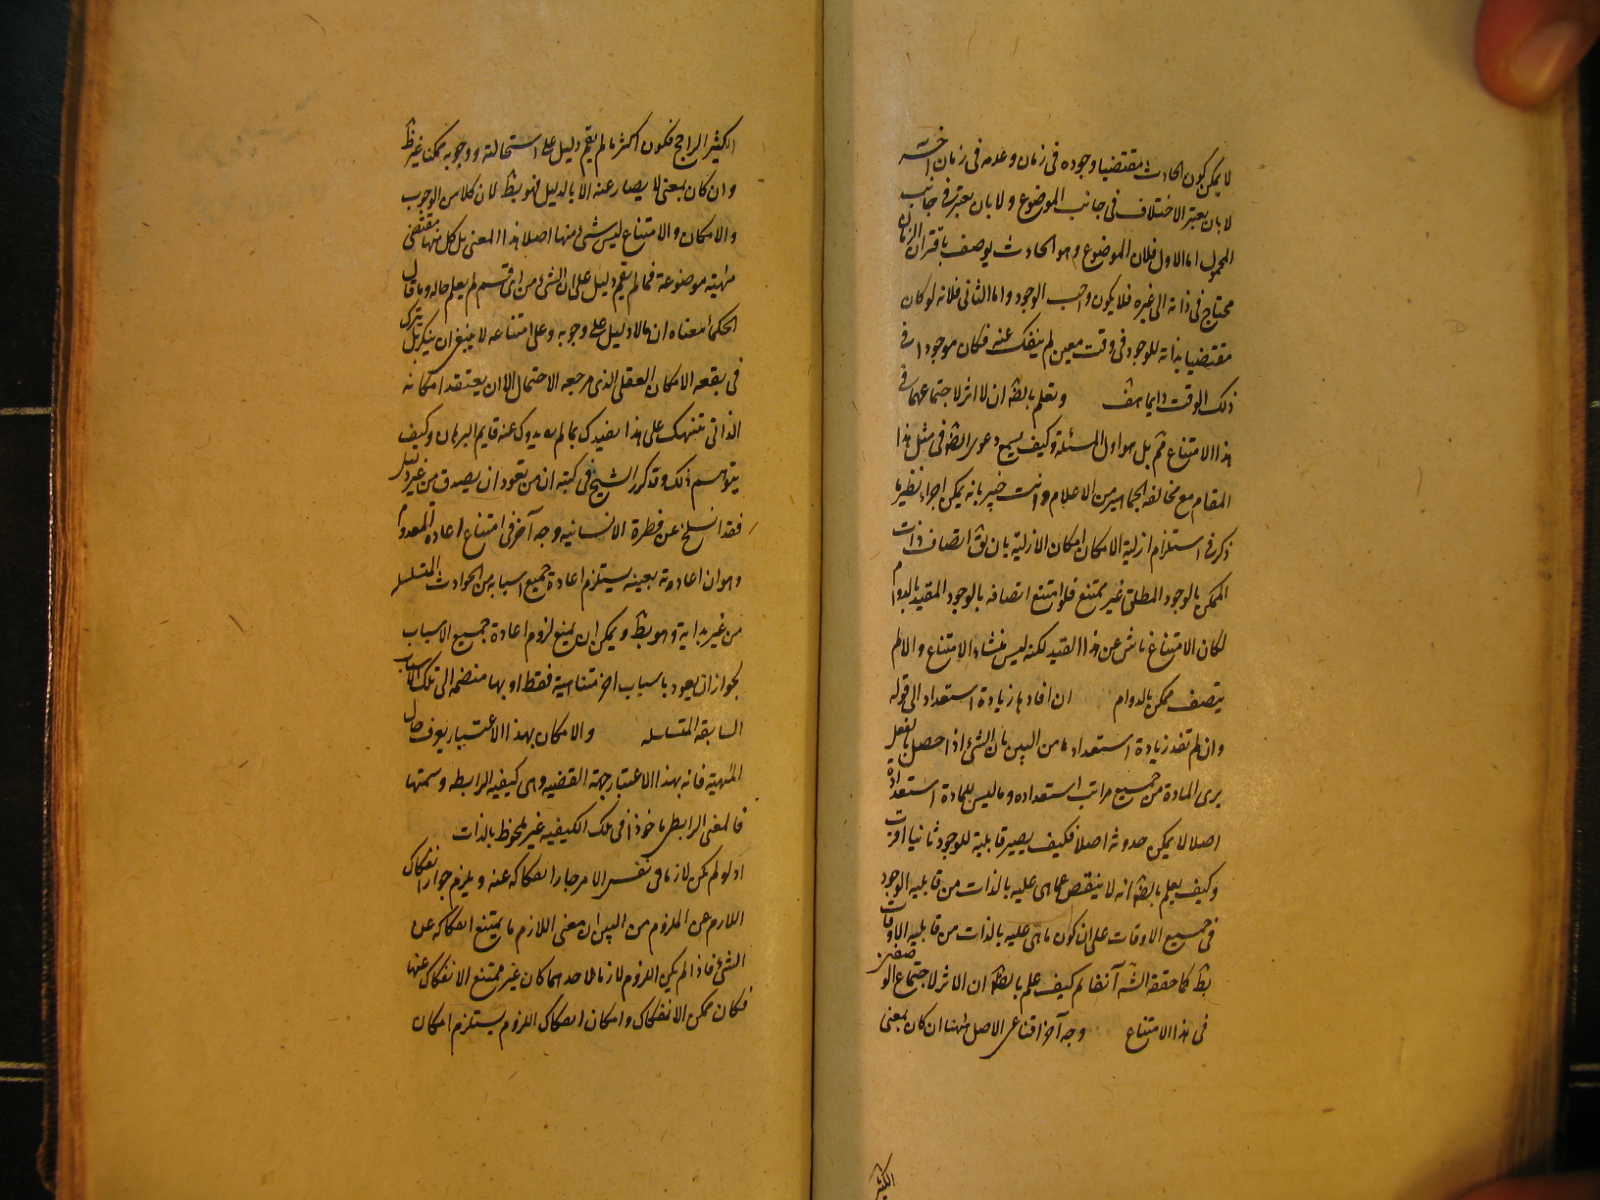 لا يمكن كون الحادث مقتضيا وجوده فى زمان وعدمه فى زمان آخر
لا بان يعتبر الاختلاف فى جانب الموضوع ولا بان يعتبر فى جانب
المحمول اما الاول فلان الموضوع وهو الحادث يوصف باقتران الزمان
محتاج فى ذاته الى غيره فلا يكون واجب الوجود واما الثانى فلانه لو كان
مقتضيا بذاته للوجود فى وقت معين لم ينفك عنه فكان موجودا فى
ذلك الوقت دايما هف ونعلم بالضه ان لا اثر لاجتماعهما فى
هذا الامتناع ثم بل هو اول المسئلة وكيف يسمع دعوى الضه فى مثل هذا
المقام مع مخالفة الجماهير من الاعلام وانت خبير بانه يمكن اجراء نظير ما
ذكر فى استلزام ازلية الامكان امكان الازلية بان يق اتصاف ذات
الممكن بالوجود المطلق غير ممتنع فلو امتنع اتصافه بالوجود المقيد بالدوام
لكان الامتناع ناش عن هذا القيد لكنه ليس منشاء الامتناع والا لم
يتصف ممكن بالدوام ان افادها زيادة استعداد الى قوله
وان لم تفد زيادة استعداد ما من البين ان الشئ اذا حصل بالفعل
برى المادة من جميع مراتب استعداده وما ليس للمادة استعداده
اصلا لا يمكن حدوثه اصلا فكيف يصير قابلية للوجود ثانيا اقرب
وكيف يعلم بالضه انه لا ينقص عما هى عليه بالذات من قابلية الوجود
فى جميع الاوقات على ان كون ما هى عليه بالذات من قابلية الاوقات
بط كما حققه الش آنفا ثم كيف علم بالضه ان الاثر لاجتماع الوصفين
فى هذا الامتناع وجه آخر اقناعى الاصل ههنا ان كان بمعنى
الكثير
الكثير الراجح فكون اكثر ما لم يقم دليل على استحالته ووجوبه ممكنا غير ظ
وان كان بمعنى لا يصار عنه الا بالدليل فهو بط لان كلا من الوجوب
والامكان والامتناع ليس شئ منها اصلا بهذا المعنى بل كل منها مقتضى
مهية موضوعة فما لم يقم دليل على ان الشئ من اى قسم لم يعلم حاله وما قال
الحكماء معناه ان ما لا دليل على وجوبه وعلى امتناعه لا ينبغى ان ينكر بل يترك
فى بقعة الامكان العقلى الذى مرجعه الاحتمال لا ان يعتقد امكانه
الذاتى على هذا ما لم يذدك عنه قايم البرهان وكيف
يتوهم ذلك وقد كرر الشيخ فى كتبه ان من تعود ان يصدق من غير دليل
فقد انسلخ عن فطرة الانسانية وجه آخر فى امتناع اعادة المعدوم
وهو ان اعادته بعينه يستلزم اعادة جميع اسبابه من الحوادث المتسلسله
من غير بداية وهو بط ويمكن ان يمنع لزوم اعادة جميع الاسباب
بجواز ان يعود باسباب اخر متناهية فقط او بها منضمة الى تلك الاسباب
السابقة المتسلسله والامكان بهذا الاعتبار يعرف حال
المهية فانه بهذا الاعتبار جهة القضيه وهى كيفية الرابطه وسمتها
فالمعنى الرابطى ماخوذ فى تلك الكيفيه غير ملحوظ بالذات
اذ لو لم يكن لازما فى نفس الامر جاز انفكاكه عنه ويلزم جواز انفكاك
اللازم عن الملزوم من البين ان معنى اللازم ما يمتنع انفكاكه عن
الشئ فاذا لم يكن اللزوم لازما لاحدهما كان غير ممتنع الانفكاك عنها
فكان ممكن الانفكاك وامكان انفكاك اللزوم يستلزم امكان